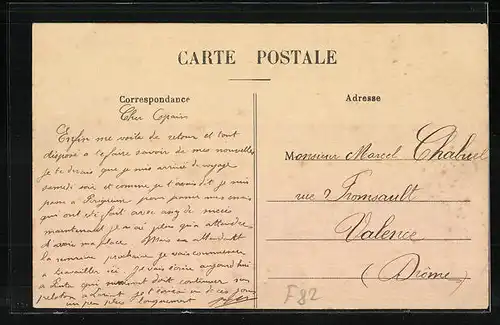 CARTE POSTALE
Correspondance
Adresse
Cher Copain
Enfin me voila de retour et tout
disposé a te faire savoir de mes nouvelles
je te dirais que je suis arrivé de voyage
samedi soir et comme je t'avais dit je suis
passé a Perigueux pour passer mes
qui ont été fait avec assez de succès
maintenant je n'ai plus qu'a attendre
d'avoir ma place Mais en attendant
la semaine prochaine je vais commencer
a travailler ici Je vais écrire aujourd'hui
a qui doit continuer son
peloton a je t'écrirai un de ces jours
un peu plus longuement
Monsieur Marcel Chabuel
rue
Valence
(Drôme)
F82